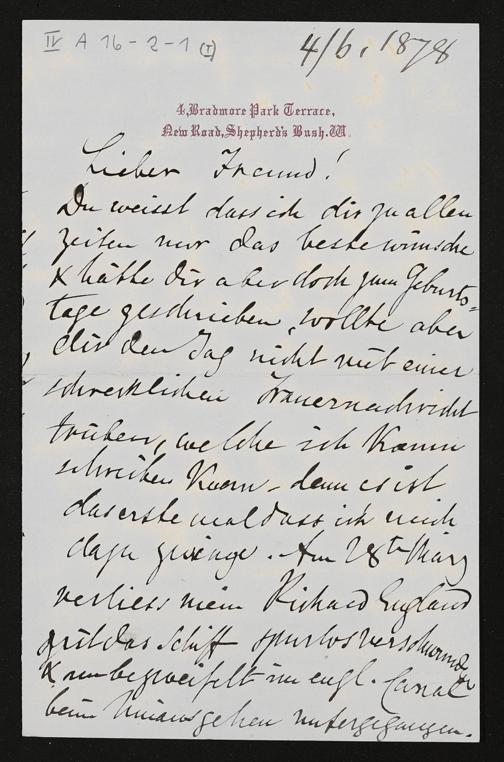 IV A 16-2-1 (I)
4/6. 1878
4, Bradmore Park Terrace,
New Road, Shepherd's Bush. W.
Lieber Freund!
Du weisst dass ich dir zu allen
Zeiten nur das beste wünsche
& hätte dir aber doch zum Geburts=
tage geschrieben, wollte aber
dir den Tag nicht mit einer
schrecklichen Trauernachricht
trüben, welche ich kaum
schreiben kann – denn es ist
das erste mal dass ich mich
dazu zwinge. Am 28th März
verliess mein Richard England
das Schiff spurlos verschwunden
& unbezweifelt im engl. Canal
beim hinausgehen untergegangen.